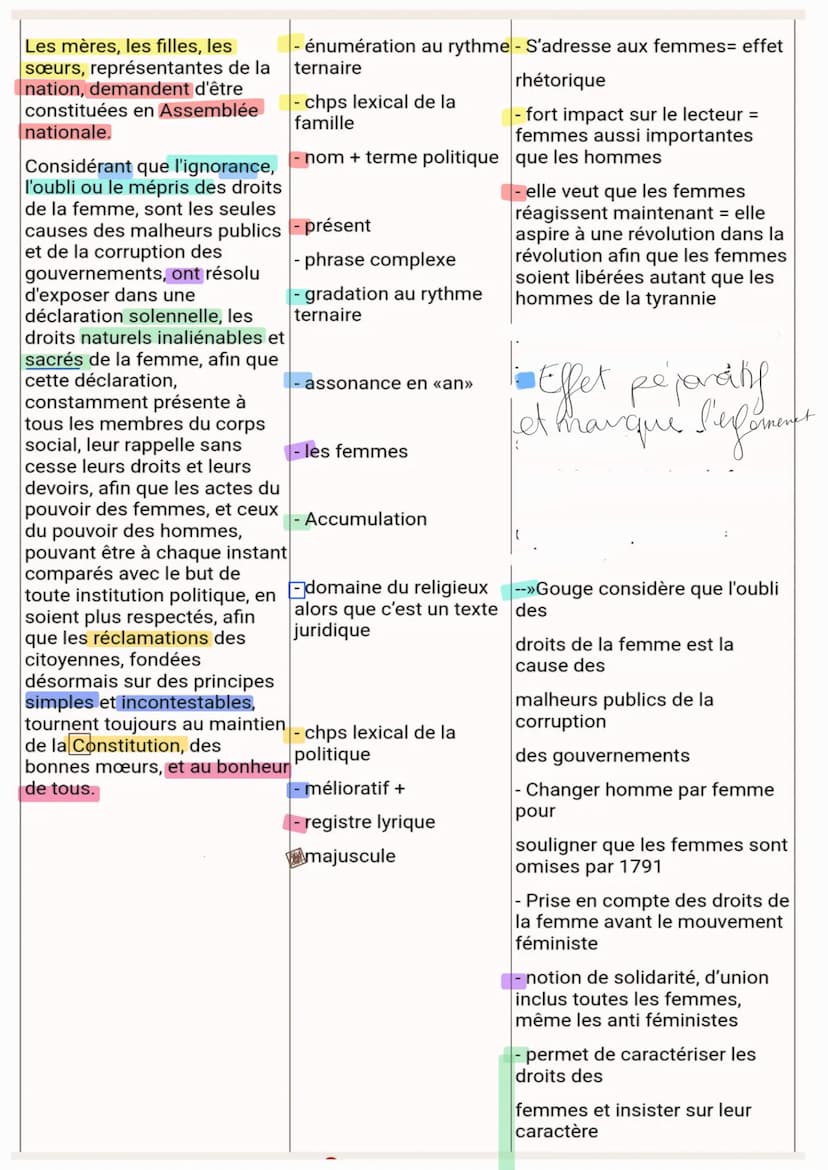 Les mères, les filles, les
sœurs, représentantes de la
nation, demandent d'être
constituées en Assemblée
nationale.
Considérant que l'ignorance,
l'oubli ou le mépris des droits
de la femme, sont les seules
causes des malheurs publics
et de la corruption des
gouvernements, ont résolu
d'exposer dans une
déclaration solennelle, les
droits naturels inaliénables et
sacrés de la femme, afin que
cette déclaration,
constamment présente à
tous les membres du corps
social, leur rappelle sans
cesse leurs droits et leurs
devoirs, afin que les actes du
pouvoir des femmes, et ceux
du pouvoir des hommes,
pouvant être à chaque instant
comparés avec le but de
toute institution politique, en
soient plus respectés, afin
que les réclamations des
citoyennes, fondées
désormais sur des principes
simples et incontestables,
tournent toujours au maintien
de la Constitution, des
bonnes mœurs, et au bonheur
de tous.
- énumération au rythme
ternaire
- chps lexical de la
famille
- nom + terme politique
- présent
- phrase complexe
- gradation au rythme
ternaire
- assonance en «an»
- les femmes
- Accumulation
- domaine du religieux
alors que c'est un texte
juridique
- chps lexical de la
politique
- mélioratif +
- registre lyrique
majuscule
- S'adresse aux femmes= effet
rhétorique
- fort impact sur le lecteur =
femmes aussi importantes
que les hommes
- elle veut que les femmes
réagissent maintenant = elle
aspire à une révolution dans la
révolution afin que les femmes
soient libérées autant que les
hommes de la tyrannie
Effet péjoratif
et marque
--»Gouge considère que l'oubli
des
droits de la femme est la
cause des
malheurs publics de la
corruption
des gouvernements
- Changer homme par femme
pour
souligner que les femmes sont
omises par 1791
- Prise en compte des droits de
la femme avant le mouvement
féministe
- notion de solidarité, d'union
inclus toutes les femmes,
même les anti féministes
- permet de caractériser les
droits des
femmes et insister sur leur
caractère